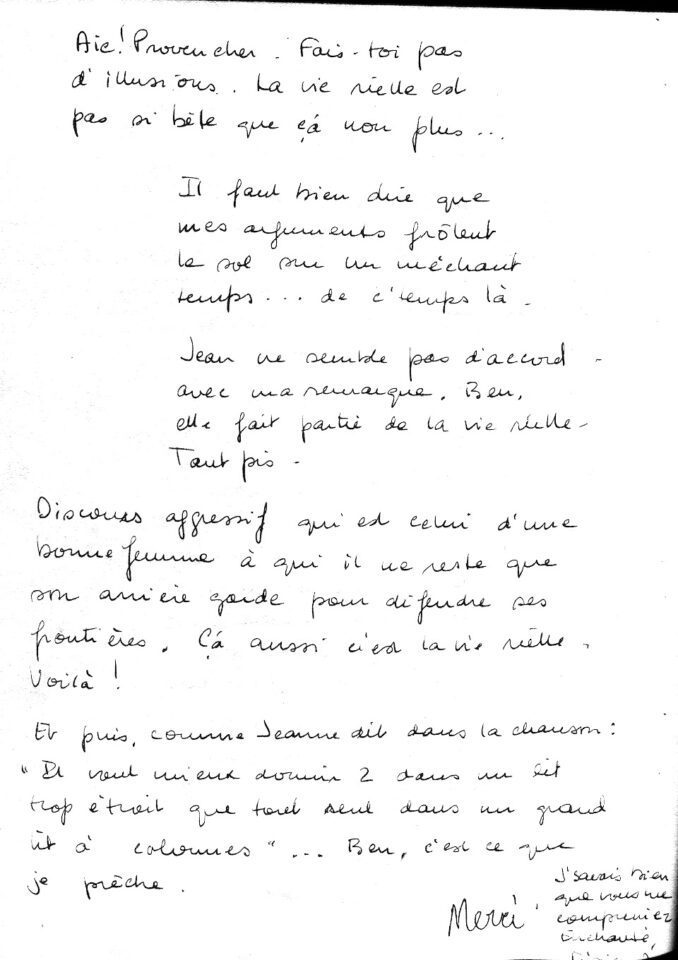 Aie! Provencher. Fais-toi pas
d'illusions. La vie réelle est
pas si bête que çà non plus...
Il faut bien dire que
mes arguments frôlent
le sol sur un méchant
temps... de c'temps là.
Jean ne semble pas d'accord -
avec ma remarque. Ben,
elle fait partie de la vie réelle -
Tant pis -
Discours aggressif qui est celui d'une
bonne femme à qui il ne reste que
son arrière garde pour défendre ses
frontières. Çà aussi c'est la vie réelle.
Voilà !
Et puis, comme Jeanne dit dans la chanson :
"Il vaut mieux dormir 2 dans un lit
trop étroit que tout seul dans un grand
lit à colonnes"... Ben, c'est ce que
je prêche.
Merci.
J'savais bien
que vous me
compreniez
Enchanté,